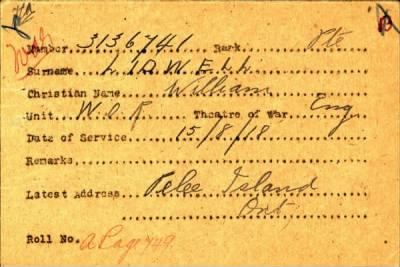 Number 3136741 Rank Pte
Surname LIDWELL
Christian Name William
Unit W.O.R. Theatre of War Eng
Date of Service 15/8/18
Remarks
Latest Address Pelee Island
Ont,
Roll No. A Page 749.